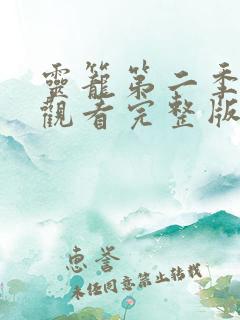 靈籠第二季
觀看完整版
惠誉
未经同意禁止转载